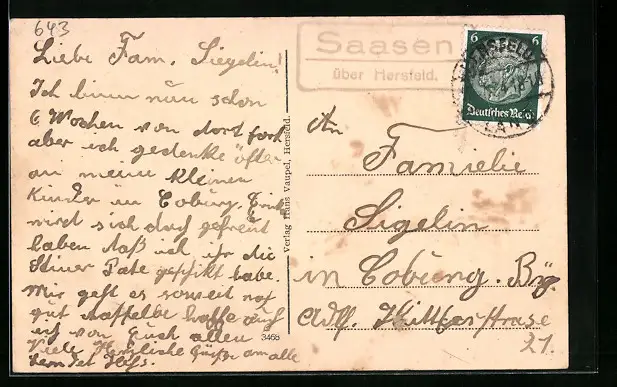 643
Liebe Fam. Siegelin!
Ich binn nun schon
6 Wochen von dort fort
aber ich gedenke öfter
an meine kleinen
Kinder in Coburg,
wird sich doch gefreut
haben daß ich ihr die
Steiner Pate geschikt habe.
Mir geht es soweit noch
gut dasselbe hoffe auch
ich von Euch allen
Viele Herzliche Grüße an alle
Saasen
über Hersfeld.
6 6
HERSFELD
LAND
Deutsches Reich
Verlag Hans Vaupel, Hersfeld.
3468
An
Familie
Sigelin
in Coburg. Bay.
Adlf. Hittlerstrase
21.